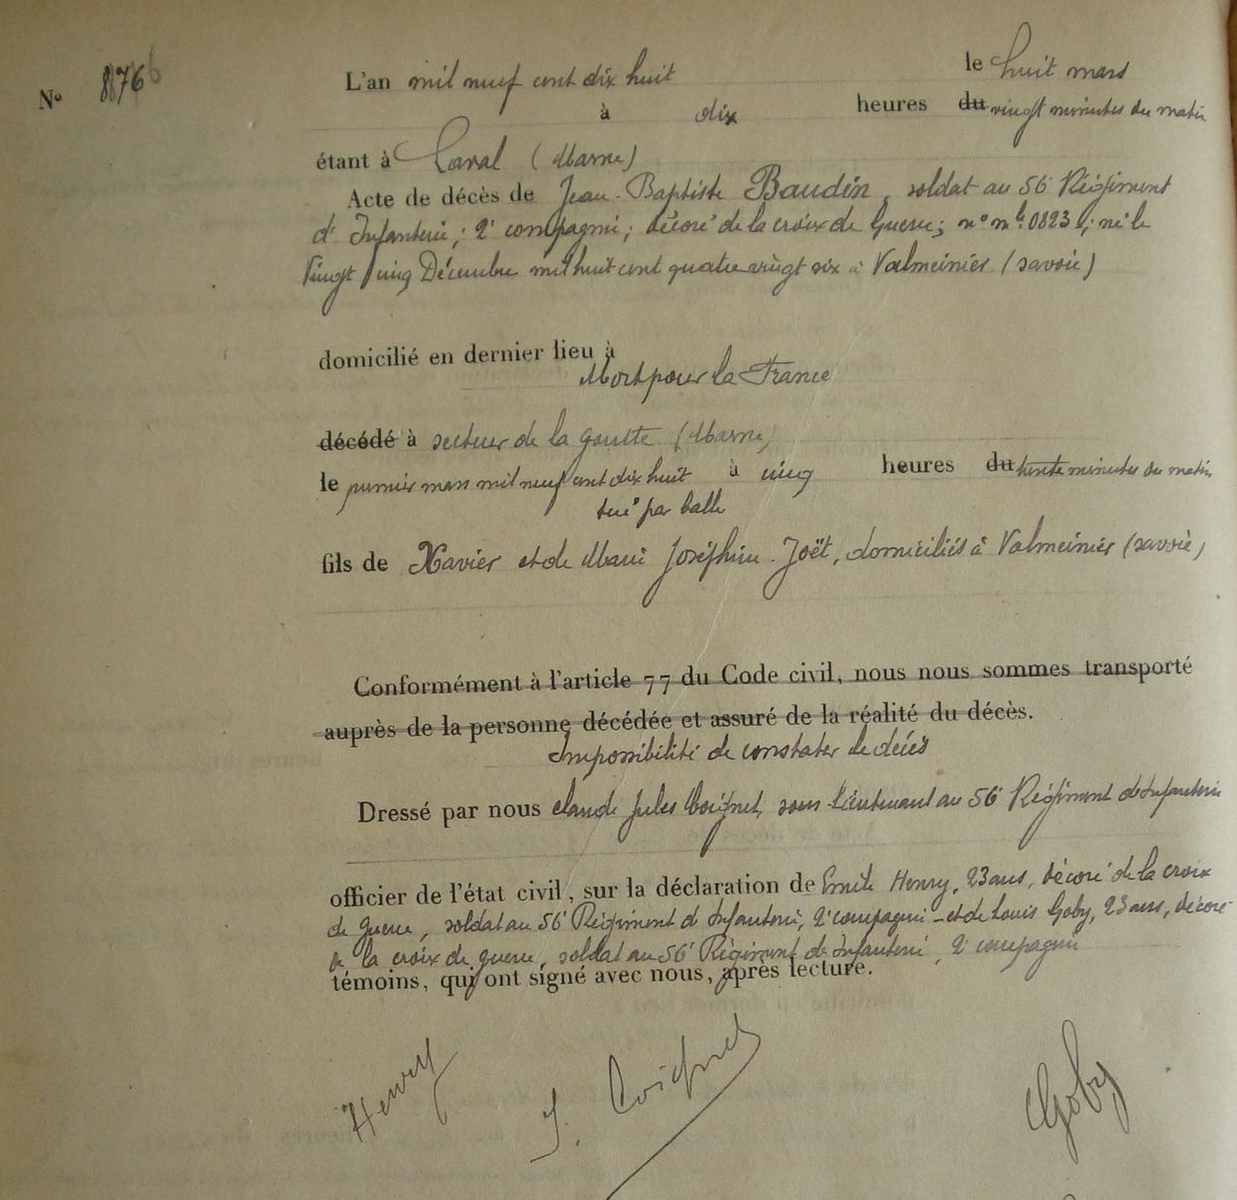 Nº 8766
L'an mil neuf cent dix huit le huit mars
à dix heures du vingt minutes du matin
étant à Laval (Marne)
Acte de décès de Jean-Baptiste Baudin, soldat au 56e Régiment
d'Infanterie; 2e compagnie; décoré de la croix de Guerre; n° mle 0823; né le
Vingt cinq Décembre mil huit cent quatre vingt six à Valmeinier (savoie)
domicilié en dernier lieu à
Mort pour la France
décédé à secteur de la Goutte (Marne)
le premier mars mil neuf cent dix huit à cinq heures du trente minutes du matin
tué par balle
fils de Xavier et de Marie Joséphine Joët, domiciliés à Valmeinier (savoie)
Conformément à l'article 77 du Code civil, nous nous sommes transporté
auprès de la personne décédée et assuré de la réalité du décès.
Impossibilité de constater le décès
Dressé par nous Claude Jules Coignet, sous-lieutenant au 56e Régiment d'Infanterie
officier de l'état civil, sur la déclaration de Emile Henry, 23 ans, décoré de la croix
de guerre, soldat au 56e Régiment d'Infanterie, 2e compagnie - et de Louis Goby, 23 ans, décoré
de la croix de guerre, soldat au 56e Régiment d'Infanterie, 2e compagnie
témoins, qui ont signé avec nous, après lecture.
Henry J. Coignet Goby